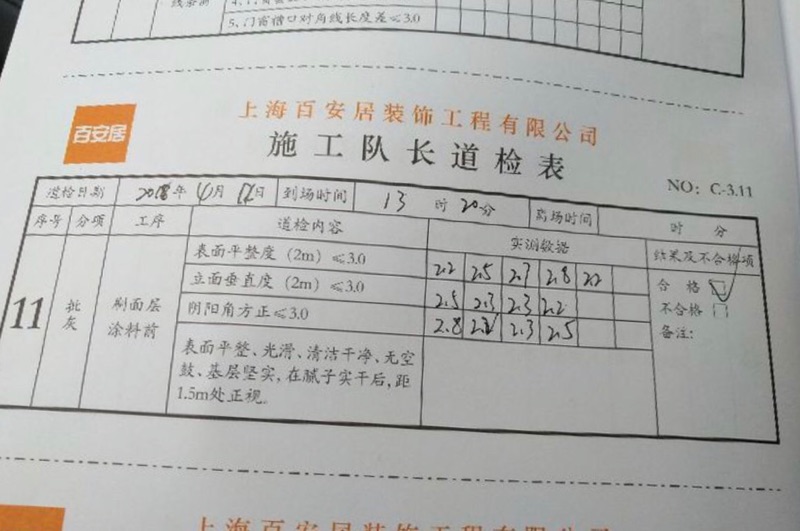 5、门窗樘口对角线长度差≤3.0
百安居
上海百安居装饰工程有限公司
施工队长道检表
NO: C-3.11
道检日期 2018年 4月 日 到场时间 13 时 20分 离场时间 时 分
序号 分项 工序 道检内容 实测数据 结果及不合格项
11 批灰 刷面层涂料前
表面平整度（2m）≤3.0 2.2 2.5 2.7 2.8 2.2
立面垂直度（2m）≤3.0 2.5 2.3 2.3 2.2
阴阳角方正≤3.0 2.8 2.3 2.5
表面平整、光滑、清洁干净、无空
鼓、基层坚实，在腻子实干后，距
1.5m处正视。
合格
不合格
备注：
上海百安居装饰工程有限公司